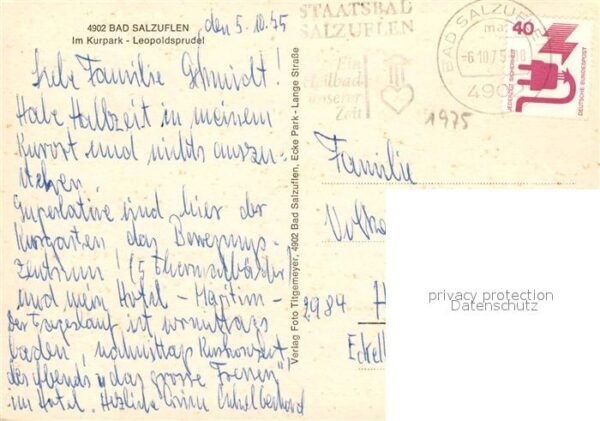 4902 BAD SALZUFLEN
Im Kurpark - Leopoldsprudel
den 5.10.75
Liebe Familie Schmidt!
Habe Halbzeit in meinem
Kurort und nichts auszu-
setzen.
Superlative sind hier der
Kurgarten das Bewegungs-
zentrum! (5 Thermalbäder)
und mein Hotel - Maritim -
Der Tageslauf ist vormittags
baden, nachmittag Kurkonzert,
des abends u das grosse Fressen
im Hotel. Herzliche Grüsse
Verlag Foto Titgemeyer, 4902 Bad Salzuflen, Ecke Park - Lange Straße
STAATSBAD
SALZUFLEN
Ein
Heilbad
unserer
Zeit
BAD SALZUFLEN
-6.10.75
4902
40
JEDERZEIT SICHERHEIT
DEUTSCHE BUNDESPOST
1975
Familie
2984 H
privacy protection
Datenschutz